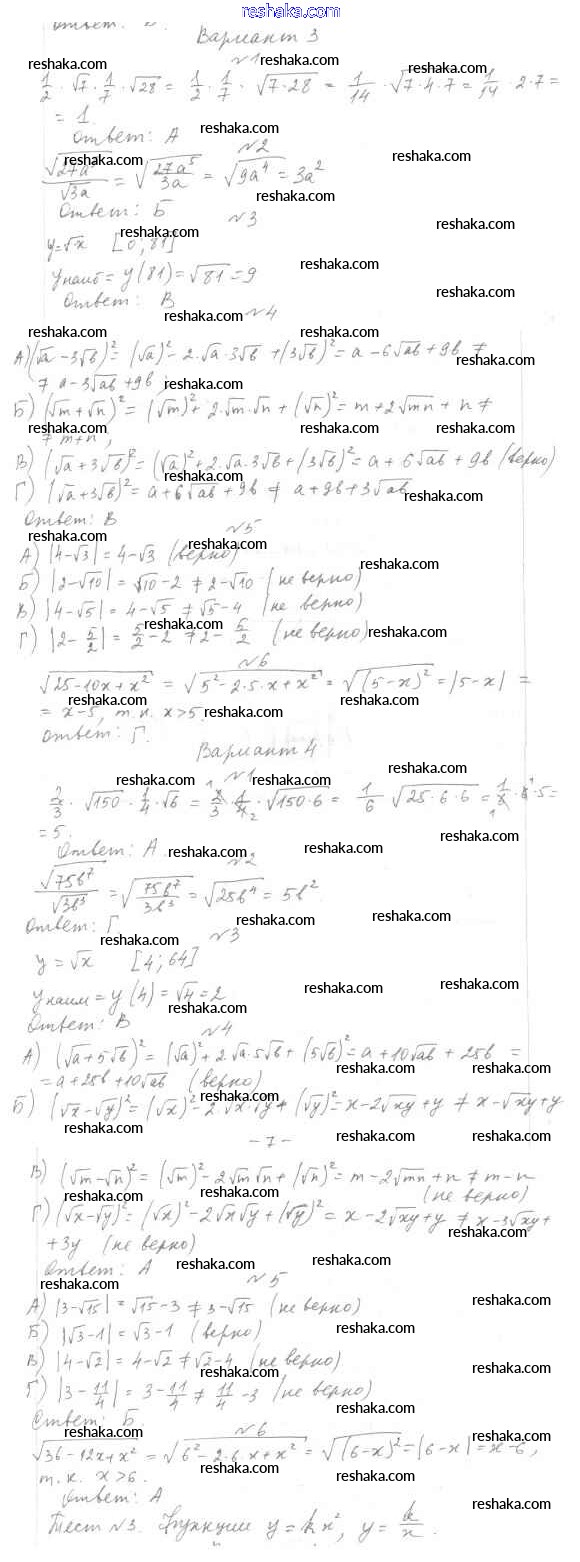 reshaka.com
Ответ: В.
Вариант 3
№1
1/2 · √7 · 1/7 · √28 = 1/2 · 1/7 · √(7·28) = 1/14 · √(7·4·7) = 1/14 · 2·7 =
= 1.
Ответ: А
№2
√(27a⁵)/√(3a) = √(27a⁵/3a) = √(9a⁴) = 3a²
Ответ: Б
№3
y=√x [0; 81]
y наиб = y(81) = √81 = 9
Ответ: В
№4
А) (√a − 3√b)² = (√a)² − 2·√a·3√b + (3√b)² = a − 6√ab + 9b ≠
≠ a − 3√ab + 9b
Б) (√m + √n)² = (√m)² + 2·√m·√n + (√n)² = m + 2√mn + n ≠
≠ m+n,
В) (√a + 3√b)² = (√a)² + 2·√a·3√b + (3√b)² = a + 6√ab + 9b (верно)
Г) (√a + 3√b)² = a + 6√ab + 9b ≠ a + 9b + 3√ab
Ответ: В
№5
А) |4−√3| = 4−√3 (верно)
Б) |2−√10| = √10−2 ≠ 2−√10 (не верно)
В) |4−√5| = 4−√5 ≠ √5−4 (не верно)
Г) |2−5/2| = 5/2−2 ≠ 2−5/2 (не верно)
№6
√(25−10x+x²) = √(5²−2·5·x+x²) = √((5−x)²) = |5−x| =
= x−5, т.к. x>5.
Ответ: Г.
Вариант 4
№1
2/3 · √150 · 1/4 · √6 = 2/3 · 1/4 · √(150·6) = 1/6 √(25·6·6) = 1/6 · 6 · 5 =
= 5.
Ответ: А.
№2
√(75b⁷)/√(3b³) = √(75b⁷/3b³) = √(25b⁴) = 5b².
Ответ: Г.
№3
y = √x [4; 64]
y наим = y(4) = √4 = 2
Ответ: В
№4
А) (√a + 5√b)² = (√a)² + 2·√a·5√b + (5√b)² = a + 10√ab + 25b =
= a + 25b + 10√ab (верно)
Б) (√x − √y)² = (√x)² − 2·√x·√y + (√y)² = x − 2√xy + y ≠ x − √xy + y
− 7 −
В) (√m − √n)² = (√m)² − 2√m√n + (√n)² = m − 2√mn + n ≠ m − n
(не верно)
Г) (√x − √y)² = (√x)² − 2√x√y + (√y)² = x − 2√xy + y ≠ x − 3√xy +
+ 3y (не верно)
Ответ: А
№5
А) |3−√15| = √15−3 ≠ 3−√15 (не верно)
Б) |√3−1| = √3−1 (верно)
В) |4−√2| = 4−√2 ≠ √2−4 (не верно)
Г) |3−11/4| = 3−11/4 ≠ 11/4−3 (не верно)
Ответ: Б.
№6
√(36−12x+x²) = √(6²−2·6x+x²) = √((6−x)²) = |6−x| = x−6,
т.к. x>6.
Ответ: А
Тест №3. Функции y = kx², y = k/x.